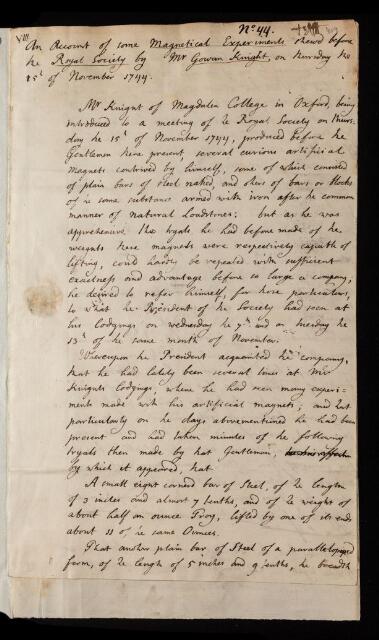 No. 44.
VIII
An Account of some Magnetical Experiments shewed before
the Royal Society by Mr Gowan Knight, on thursday the
15th of November 1744.
Mr Knight of Magdalen College in Oxford, being
introduced to a meeting of the Royal Society on thurs-
day the 15th of November 1744, produced before the
Gentlemen there present several curious artificial
Magnets contrived by himself, some of which consisted
of plain bars of steel naked, and others of bars or blocks
of the same substance armed with iron after the common
manner of natural loadstones: but as he was
apprehensive the tryals he had before made of the
weights these magnets were respectively capable of
lifting, could hardly be repeated with sufficient
exactness and advantage before so large a company;
he desired to refer himself, for those particulars,
to what the President of the Society had seen at
his lodgings on wednesday the 7th and on tuesday the
13th of the same month of November.
Whereupon the President acquainted the company,
that he had lately been several times at Mr
Knights lodgings, where he had seen many experi-
ments made with his artificial magnets; and that
particularly on the days abovementioned he had been
present and had taken minutes of the following
tryals then made by that Gentleman,
by which it appeared, that
A small eight corned bar of Steel, of the length
of 3 inches and almost 7 tenths, and of the weight of
about half an ounce Troy, lifted by one of its ends
about 11 of the same Ounces.
That another plain bar of Steel of a parallelopiped
form, of the length of 5 inches and 9 tenths, the breadth